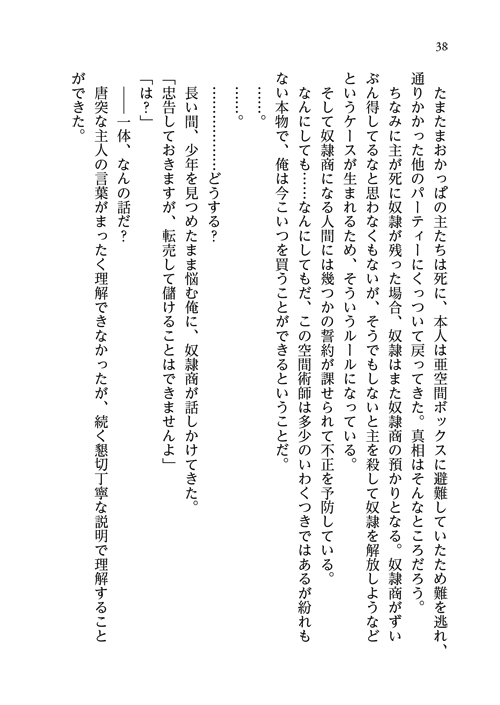 38
たまたまおかっぱの主たちは死に、本人は亜空間ボックスに避難していたため難を逃れ、
通りかかった他のパーティーにくっついて戻ってきた。真相はそんなところだろう。
ちなみに主が死に奴隷が残った場合、奴隷はまた奴隷商の預かりとなる。奴隷商がずい
ぶん得してるなと思わなくもないが、そうでもしないと主を殺して奴隷を解放しようなど
というケースが生まれるため、そういうルールになっている。
そして奴隷商になる人間には幾つかの誓約が課せられて不正を予防している。
なんにしても……なんにしてもだ、この空間術師は多少のいわくつきではあるが紛れも
ない本物で、俺は今こいつを買うことができるということだ。
……。
……。
………………どうする?
長い間、少年を見つめたまま悩む俺に、奴隷商が話しかけてきた。
「忠告しておきますが、転売して儲けることはできませんよ」
「は?」
――一体、なんの話だ?
唐突な主人の言葉がまったく理解できなかったが、続く懇切丁寧な説明で理解すること
ができた。